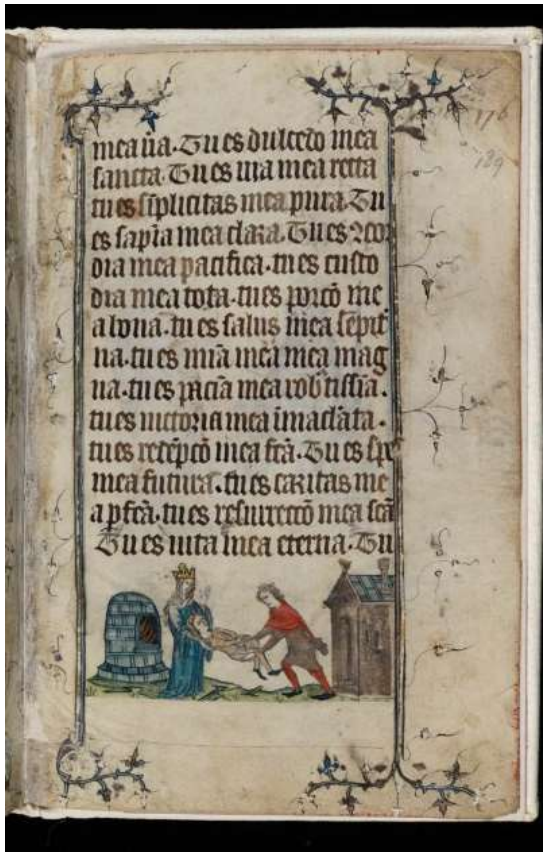 176
189
mea ūa. Tu es dulcedo mea
sancta. Tu es uia mea recta
tu es sīplicitas mea pura. Tu
es sapīa mea clara. Tu es ꝯcor
dia mea pacifica. tu es custo
dia mea tota. tu es porcō me
a bona. tu es salus mea sēpit̾
na. tu es mīa mea mea mag
na. tu es paciā mea rob̾tissīa.
tu es uictoria mea īmaclāta.
tu es redēpcō mea Tu es spes
mea futura. tu es caritas me
a pfc̄a. tu es resurrectō mea scā
Tu es uita mea eterna. Tu